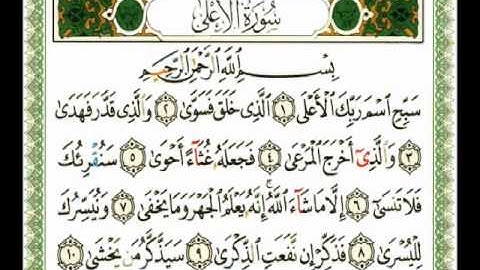 سُورَةُ الْأَعْلَىٰ
بِسْمِ اللَّهِ الرَّحْمَٰنِ الرَّحِيمِ
سَبِّحِ اسْمَ رَبِّكَ الْأَعْلَى ﴿١﴾ الَّذِي خَلَقَ فَسَوَّىٰ ﴿٢﴾ وَالَّذِي قَدَّرَ فَهَدَىٰ
﴿٣﴾ وَالَّذِي أَخْرَجَ الْمَرْعَىٰ ﴿٤﴾ فَجَعَلَهُ غُثَاءً أَحْوَىٰ ﴿٥﴾ سَنُقْرِئُكَ
فَلَا تَنسَىٰ ﴿٦﴾ إِلَّا مَا شَاءَ اللَّهُ ۚ إِنَّهُ يَعْلَمُ الْجَهْرَ وَمَا يَخْفَىٰ ﴿٧﴾ وَنُيَسِّرُكَ
لِلْيُسْرَىٰ ﴿٨﴾ فَذَكِّرْ إِن نَّفَعَتِ الذِّكْرَىٰ ﴿٩﴾ سَيَذَّكَّرُ مَن يَخْشَىٰ ﴿١٠﴾